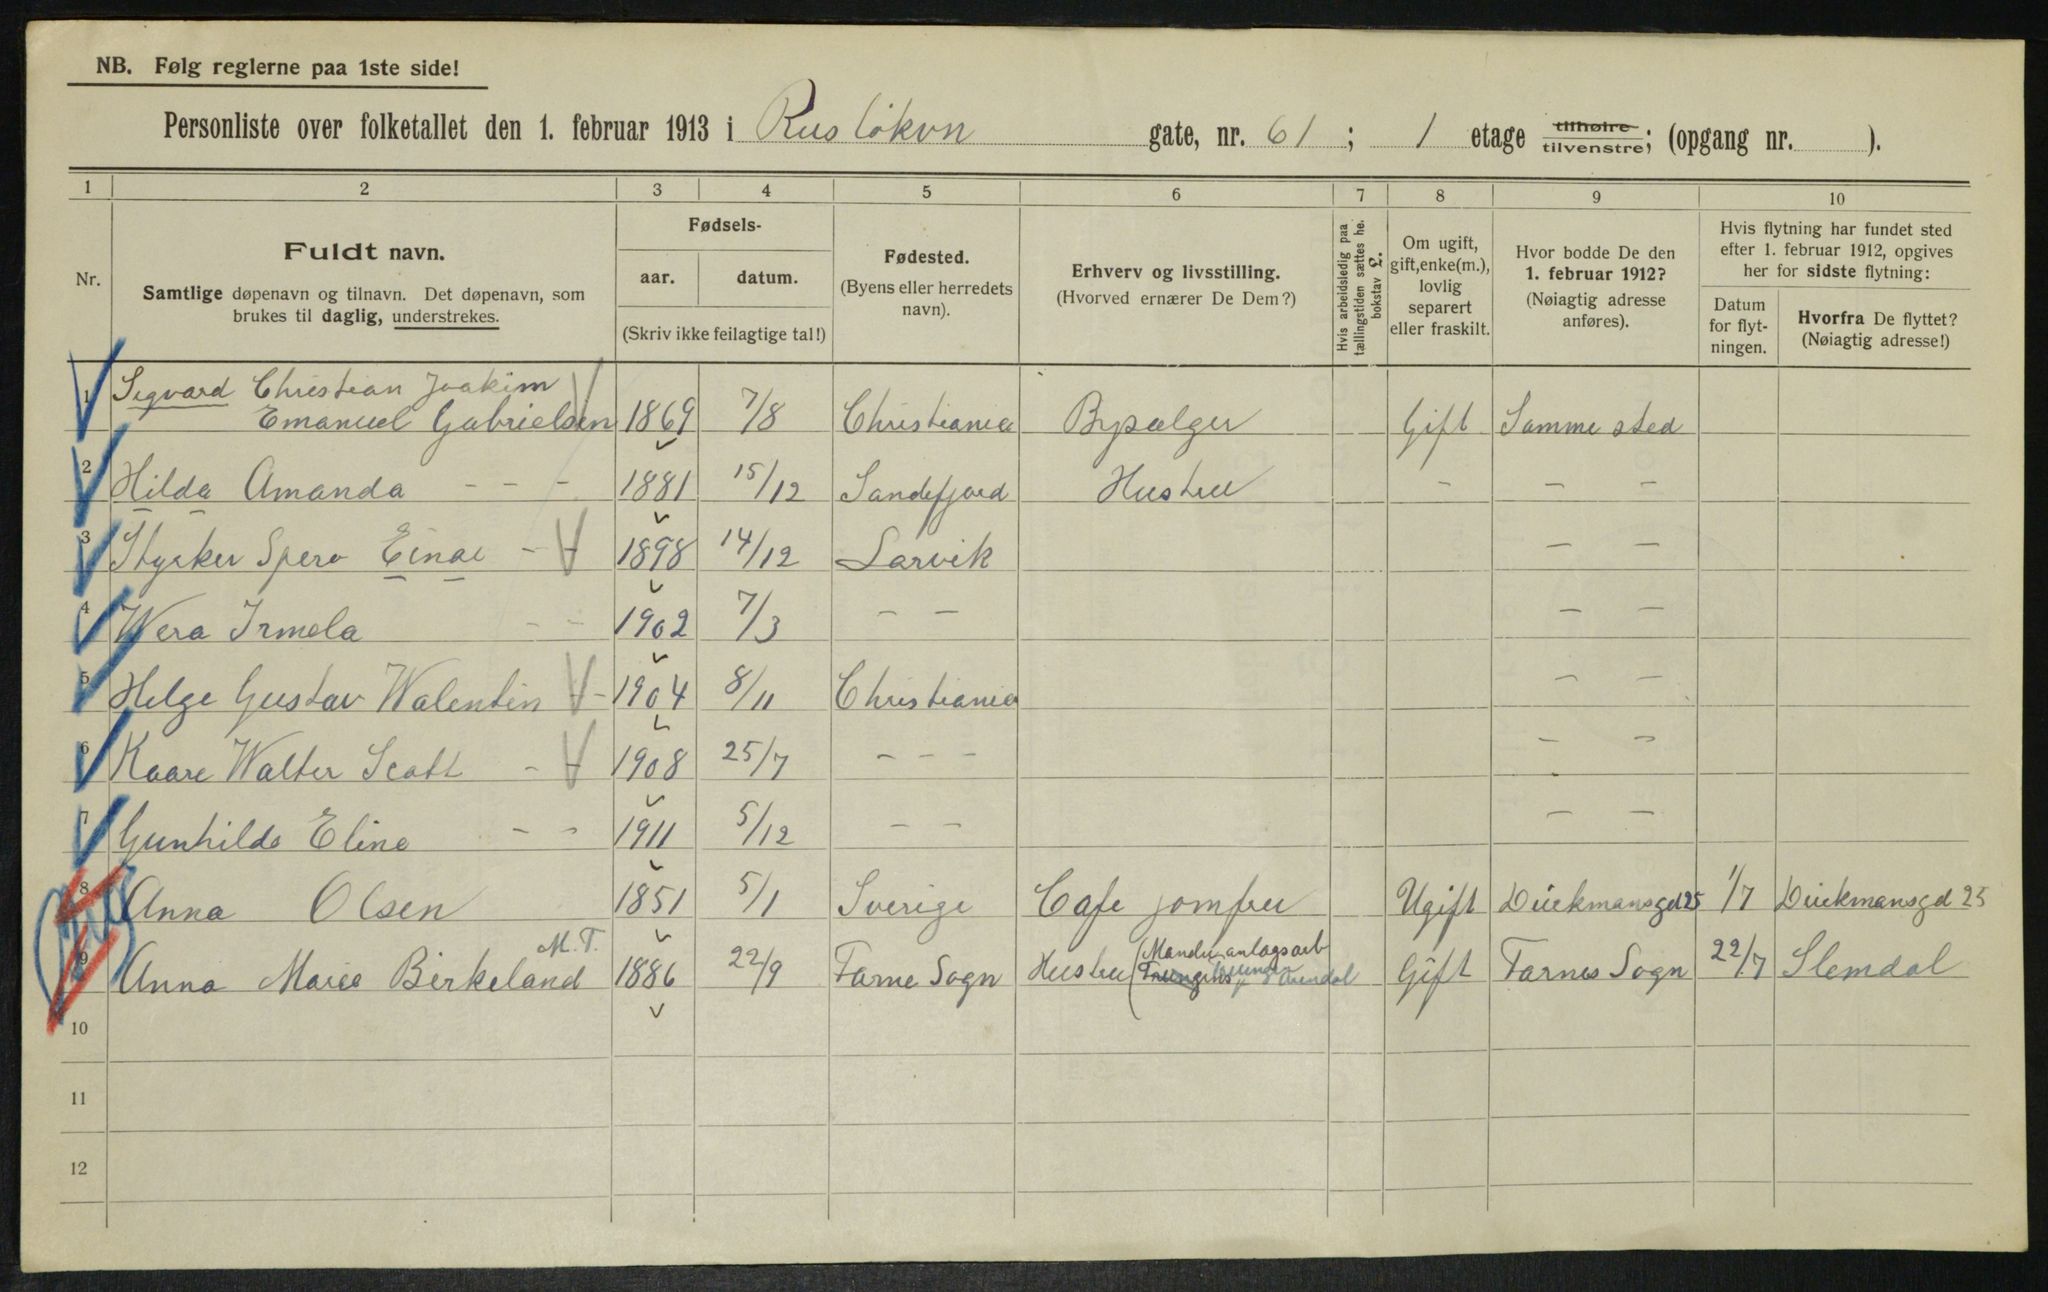 NB. Følg reglerne paa 1ste side!
Personliste over folketallet den 1. februar 1913 i Rusløkvn gate, nr. 61; 1 etage tilhøire tilvenstre; (opgang nr. ).
1 2 3 4 5 6 7 8 9 10
Nr.
Fuldt navn.
Samtlige døpenavn og tilnavn. Det døpenavn, som
brukes til daglig, understrekes.
Fødsels-
aar. datum.
(Skriv ikke feilagtige tal!)
Fødested.
(Byens eller herredets
navn).
Erhverv og livsstilling.
(Hvorved ernærer De Dem?)
Hvis arbeidsledig paa
tællingstiden sættes he.
bokstav L.
Om ugift,
gift, enke(m.),
lovlig
separert
eller fraskilt.
Hvor bodde De den
1. februar 1912?
(Nøiagtig adresse
anføres).
Hvis flytning har fundet sted
efter 1. februar 1912, opgives
her for sidste flytning:
Datum
for flyt-
ningen.
Hvorfra De flyttet?
(Nøiagtig adresse!)
1 Sigvard Christian Joakim
Emanuel Gabrielsen 1869 7/8 Christiania Bypælger Gift Samme sted
2 Hilda Amanda - - - 1881 15/12 Sandefjord Hustru - - -
3 Styrker Spero Einar - - 1898 14/12 Larvik - -
4 Wera Irmela - - 1902 7/3 - - - -
5 Helge Gustav Walentin - - 1904 8/11 Christiania - -
6 Kaare Walter Scott - - 1908 25/7 - - - - -
7 Gunhilda Eline - - 1911 5/12 - - - -
8 Anna Olsen 1851 5/1 Sverige Cafe jomfru Ugift Duekmansgd 25 1/7 Duekmansgd 25
M. T.
9 Anna Marie Birkeland 1886 22/9 Farne Sogn Hustru (Manden anlægsarb Arendal Gift Farnes Sogn 22/7 Slemdal
10
11
12